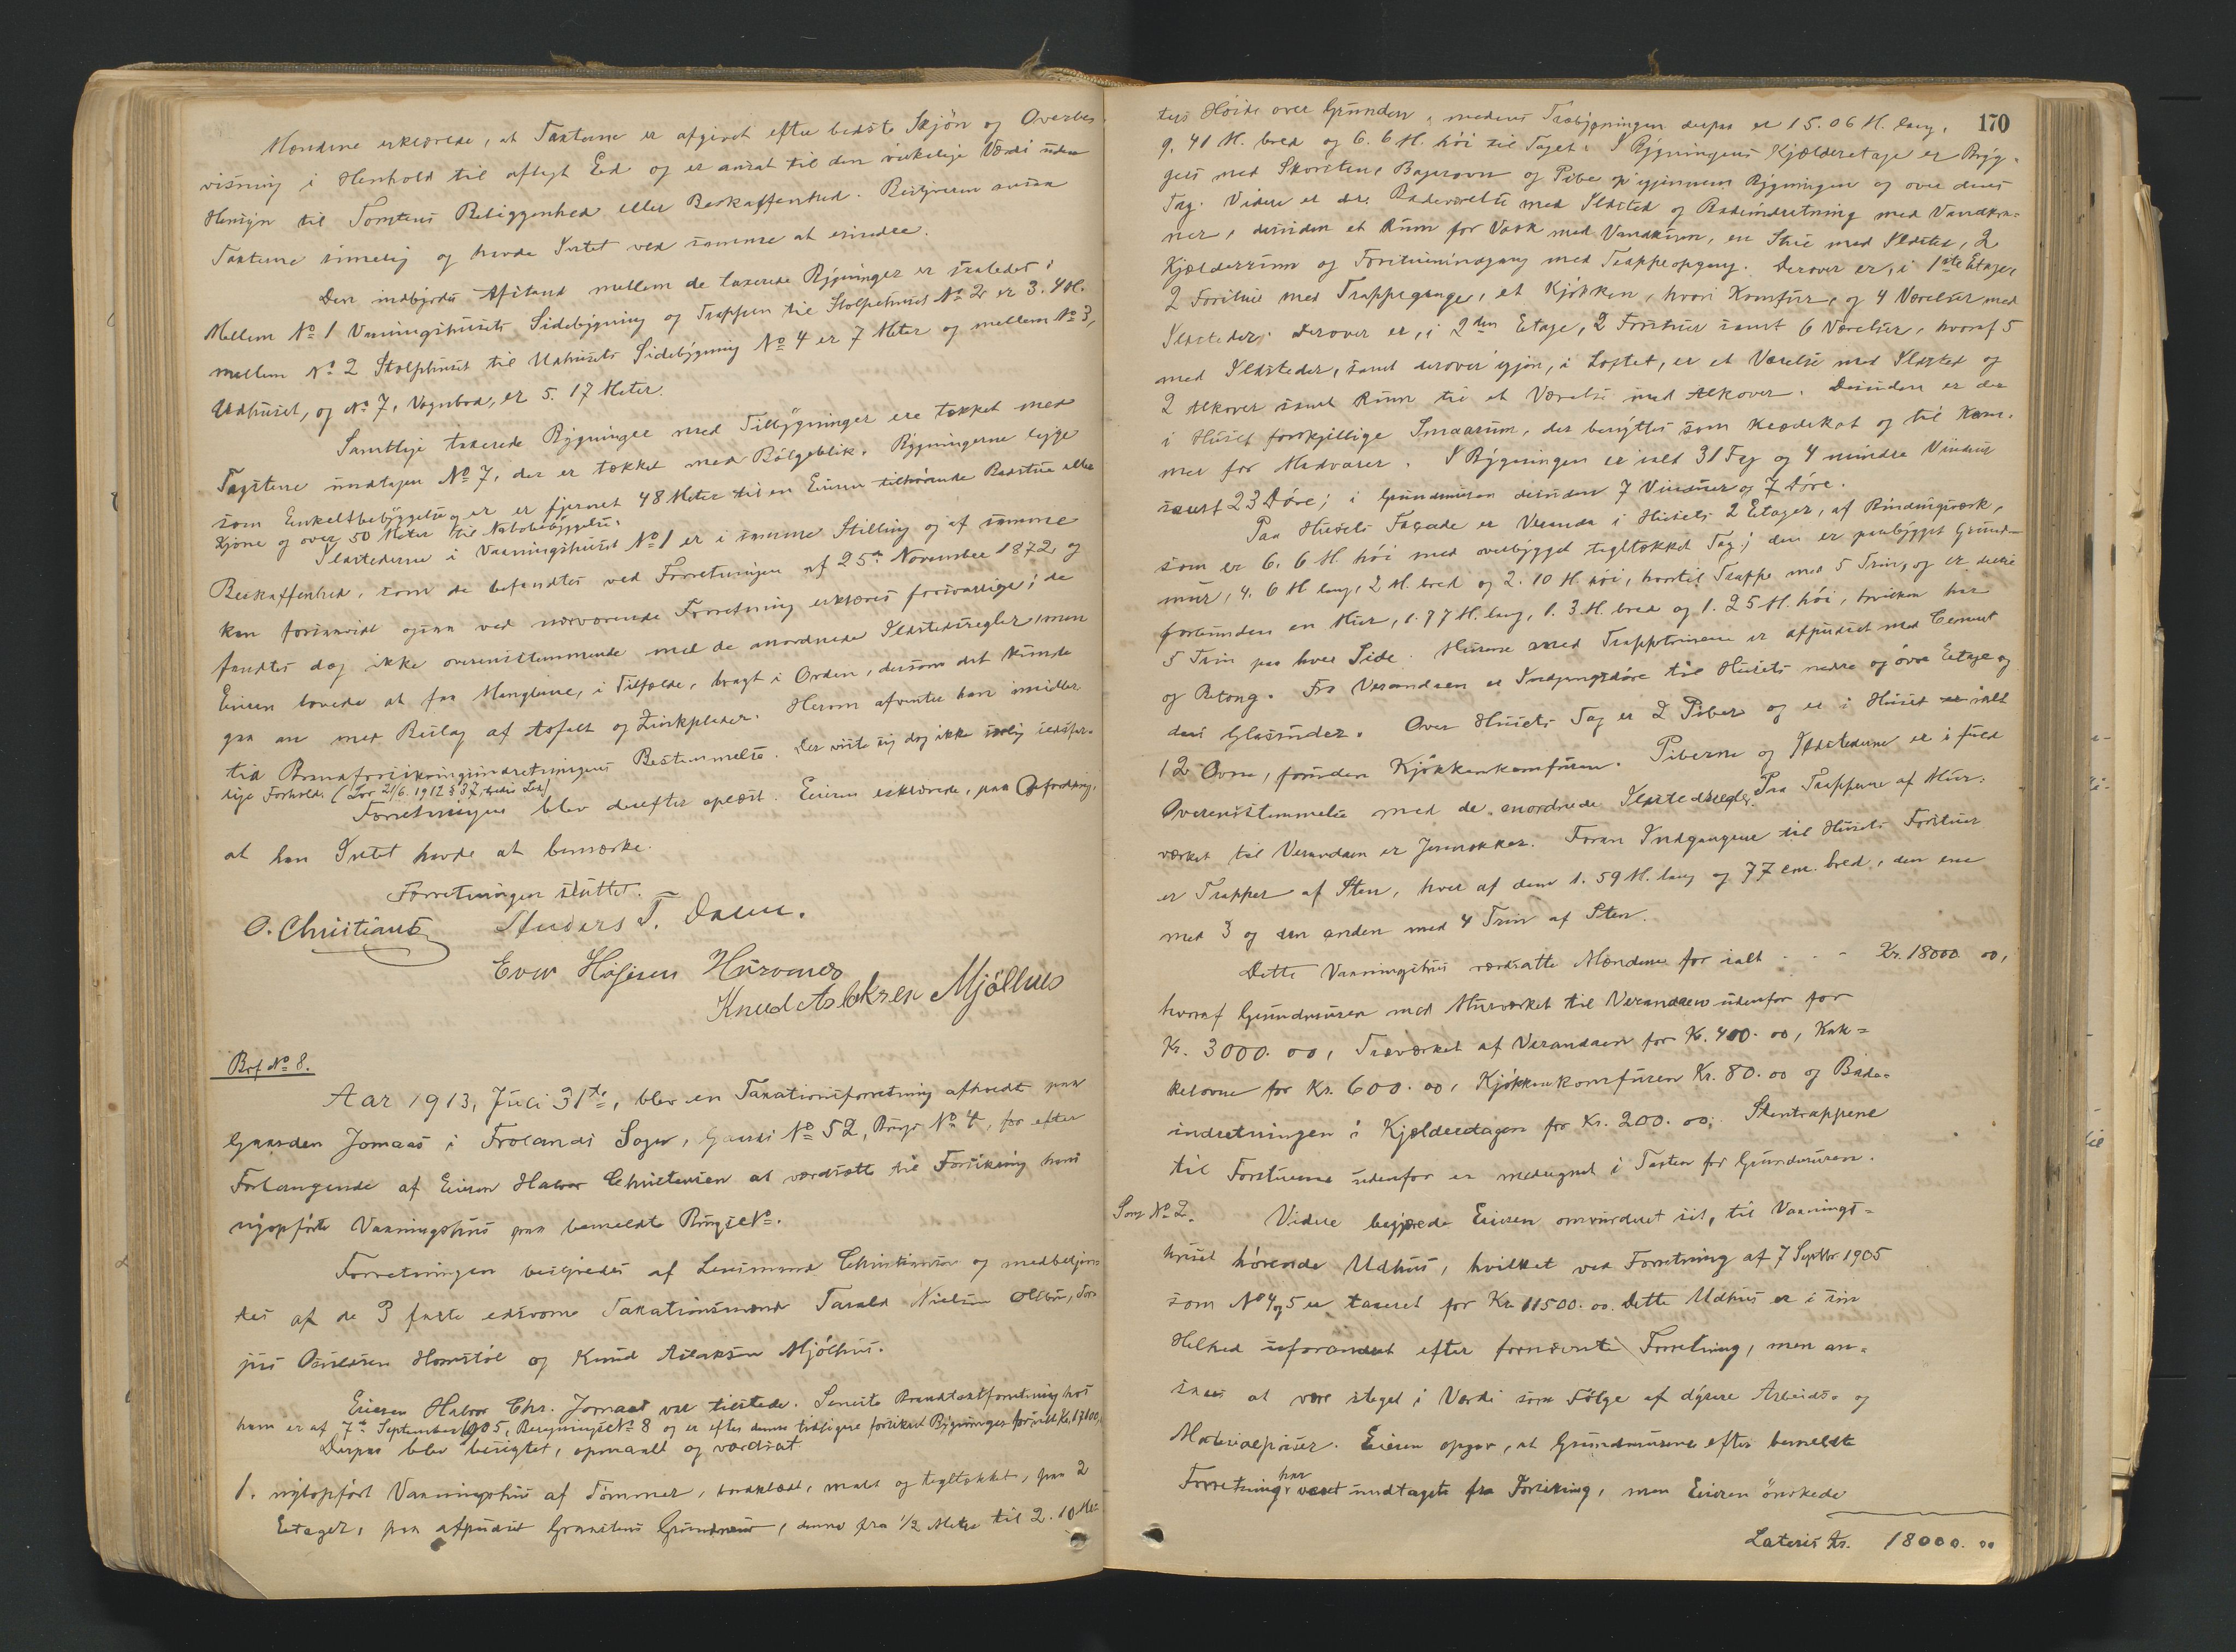 Mændene erklærede, at Taxterne er afgivet efter bedste Skjön og Overbe-
visning i Henhold til aflagt Ed og er ansat til den virkelige Værdi uden
Hensyn til Tomtens Beliggenhed eller Beskaffenhed. Bestyreren ansaa
Taxterne rimelig og havde Intet ved samme at erindre.
Den indbyrdes Afstand mellem de taxerede Bygninger er saaledes:
Mellem No 1 Vaaningshusets Sidebygning og Trappen til Stolpehuset No 2 er 3.40.
mellem No 2 Stolphuset til Udhusets Sidebygning No 4 er 7 Meter og mellem No 3,
Udhuset, og No 7, Vognbod, er 5.17 Meter.
Samtlige taxerede Bygninger med Tilbygninger ere tækket med
Tagstene undtagen No 7, der er tækket med Bölgeblik. Bygningerne ligge
som Enkeltbebyggelse og er fjernet 48 Meter til en Eieren tilhörende Badstue eller
Kjone og over 50 Meter til Nabobebyggelse.
Ildstederne i Vaaningshuset No 1 er i samme Stilling og af samme
Beskaffenhed, som de befandtes ved Forretningen af 25de November 1872 og
kan forsaavidt ogsaa ved nærværende Forretning erklæres forsvarlige; de
fandtes dog ikke overensstemmende med de anordnede Ildstedsregler, men
Eieren lovede at faa Manglerne, i Tilfælde, bragt i Orden, dersom det kunde
gaa an med Beslag af Asfalt og Zinkplader. Herom afventer han imidler
tid Brandforsikringsindretningens Bestemmelse. Der viste sig dog ikke ildsfar-
lige Forhold. (Lov 21/6. 1912 § 37, Led)
Forretningen blev derefter oplæst. Eieren erklærede, paa Opfordring,
at han Intet havde at bemærke.
Forretningen sluttet.
O. Christians Anders T. Dalen.
Even Höjesen Hurvenes
Knud Aslaksen Mjölhus
Brf No 8.
Aar 1913, Juli 31te, blev en Taxationsforretning afholdt paa
Gaarden Jomaas i Frolands Sogn, Gaards No 52, Brugs No 4, for efter
Forlangende af Eieren Halvor Christensen at værdsætte til Forsikring hans
nyopförte Vaaningshus paa bemeldte Brugs No.
Forretningen bestyredes af Lensmand Christiansen og medbetjen-
tes af de 3 faste edsvorne Taxationsmænd Tarald Nielsen Olsbu, Tor
jus Osuldsen Hornstöl og Knud Aslaksen Mjölhus.
Eieren Halvor Chr. Jomaas var tilstede. Seneste Brandtaxtforretning hos
ham er af 7de September 1905, Besigtigelse No 8 og er efter denne tidligere forsikret Bygninger for ialt Kr. 17100,
Derpaa blev besigtet, opmaalt og værdsat
1. nyopfört Vaaningshus af Tömmer, bordklædt, malet og tegltækket, paa 2
Etager, paa afpudset Graastens Grundmur, denne fra 1/2 Meter til 2.10 Me-
170
ters Höide over Grunden, medens Træbygningen derpaa er 15.06 M. lang,
9.41 M. bred og 6.6 M. höi til Taget. I Bygningens Kjælderetage er Bryg-
gers med Skorsten, Bagerovn og Pibe op igjennem Bygningen og over dens
Tag. Videre er der Badeværelse med Ildsted og Badeindretning med Vandkra-
ner, desuden et Rum for Vask med Vandkran, en Stue med Ildsted, 2
Kjælderrum og Forstueindgang med Trappeopgang. Derover er, i 1ste Etage,
2 Forstuer med Trappegange, et Kjökken, hvori Komfur, og 4 Værelser med
Ildsteder. Derover er, i 2den Etage, 2 Forstuer samt 6 Værelser, hvoraf 5
med Ildsteder, samt derover igjen, i Loftet, er et Værelse med Ildsted og
2 Alkover samt Rum til et Værelse med Alkover. Desuden er der
i Huset forskjellige Smaarum, der benyttes som Klædekot og til Kam-
mer for Madvarer. I Bygningen er ialt 31 Fag og 4 mindre Vinduer
samt 23 Döre; i Grundmuren desuden 7 Vinduer og 7 Döre.
Paa Husets Façade er Veranda i Husets 2 Etager, af Bindingsværk,
som er 6.6 M. höi med overbygget tegltækket Tag; den er paabygget Grund-
mur, 4.6 M lang, 2 M. bred og 2.10 M. höi, hvortil Trappe med 5 Trin, og er derhos
forbunden en Mur, 1.77 M. lang, 1.3 M. bred og 1.25 M. höi, hvilken har
5 Trin paa hver Side. Murene med Trappetrinene er afpudset med Cement
og Betong. Fra Verandaen er Indgangsdöre til Husets nedre og övre Etage og
des Glasruder. Over Husets Tag er 2 Piber og er i Huset ialt
12 Ovne, foruden Kjökkenkomfuren. Piberne og Ildstederne er i fuld
Overensstemmelse med de anordnede Ildstedsregler. Paa Trapperne af Mur-
værket til Verandaen er Jernrækker. Foran Indgangene til Husets Forstuer
er Trapper af Sten, hver af dem 1.59 M. lang og 77 cm. bred, den ene
med 3 og den anden med 4 Trin af Sten.
Dette Vaaningshus værdsatte Mændene for ialt - - - Kr. 18000. 00,
hvoraf Grundmuren med Murværket til Verandaen udenfor for
Kr. 3000. 00, Træværket af Verandaen for Kr. 400. 00, Kak-
kelovne for Kr. 600. 00, Kjökkenkomfuren Kr. 80. 00 og Bade-
indretningen i Kjælderetagen for Kr. 200. 00; Stentrappene
til Forstuerne udenfor er medregnet i Taxten for Grundmuren.
No 2. Videre begjærede Eieren omvurderet sit, til Vaanings-
huset hörende Udhus, hvilket ved Forretning af 7 Septbr. 1905
som No 4 og 5 er taxeret for Kr. 11500. 00. Dette Udhus er i sin
Helhed uforandret efter fornævnte Forretning, men an-
sees at være steget i Værdi som Fölge af dyrere Arbeids- og
Materialpriser. Eieren opgav, at Grundmurene efter bemeldte
Forretning har været undtagets fra Forsikring, men Eieren önskede
Lateris Kr. 18000. 00